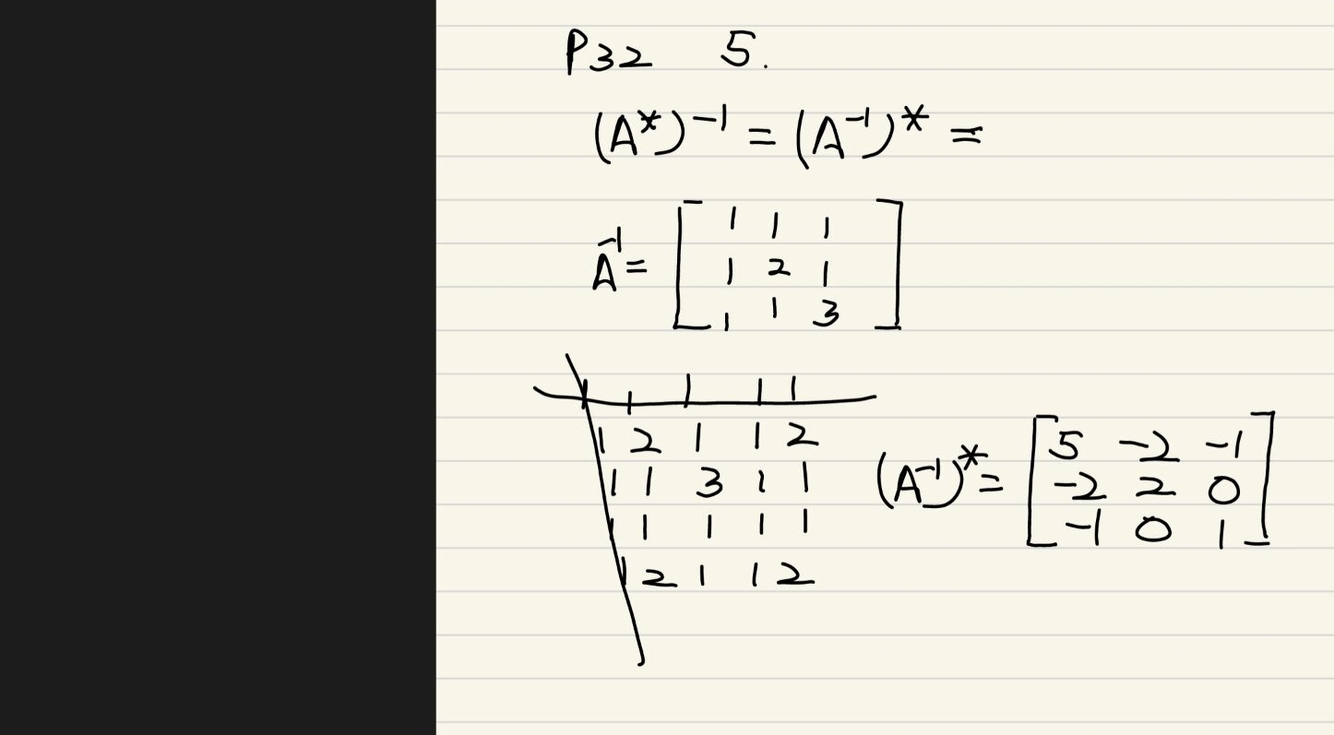 P32 5.
(A*)⁻¹ = (A⁻¹)* =
A⁻¹ = [ 1 1 1
1 2 1
1 1 3 ]
1 1 1 1
1 2 1 1 2
1 1 3 1 1
1 1 1 1 1
1 2 1 1 2
(A⁻¹)* = [ 5 -2 -1
-2 2 0
-1 0 1 ]